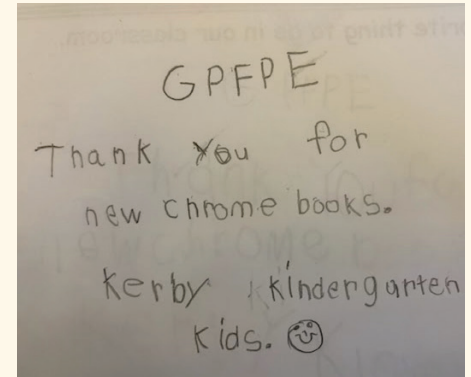 GPFPE
Thank You for
new chrome books.
Kerby kindergarten
Kids.